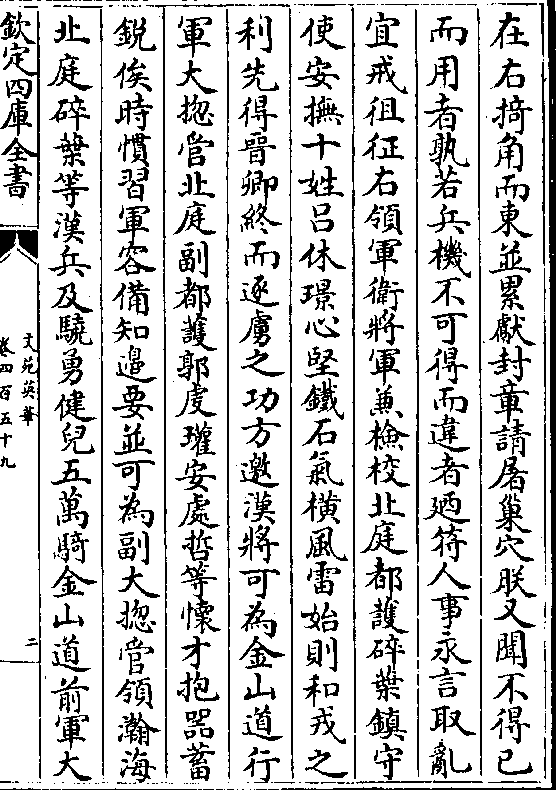 在右掎角而東並累獻封章請屠巢穴朕又聞不得已
而用者孰若兵機不可得而違者廼符人事永言取亂
宜戒徂征右領軍衛將軍兼檢校北庭都護碎葉鎮守
使安撫十姓吕休璟心堅鐵石氣横風雷始則和戎之
利先得晉卿終而逐虜之功方邀漢將可為金山道行
軍大揔管北庭副都護郭虔瓘安處哲等懐才抱器蓄
銳俟時慣習軍容備知邉要並可為副大揔管領瀚海
北庭碎葉等漢兵及驍勇健兒五萬騎金山道前軍大
欽定四庫全書
文苑英華
卷四百五十九
二